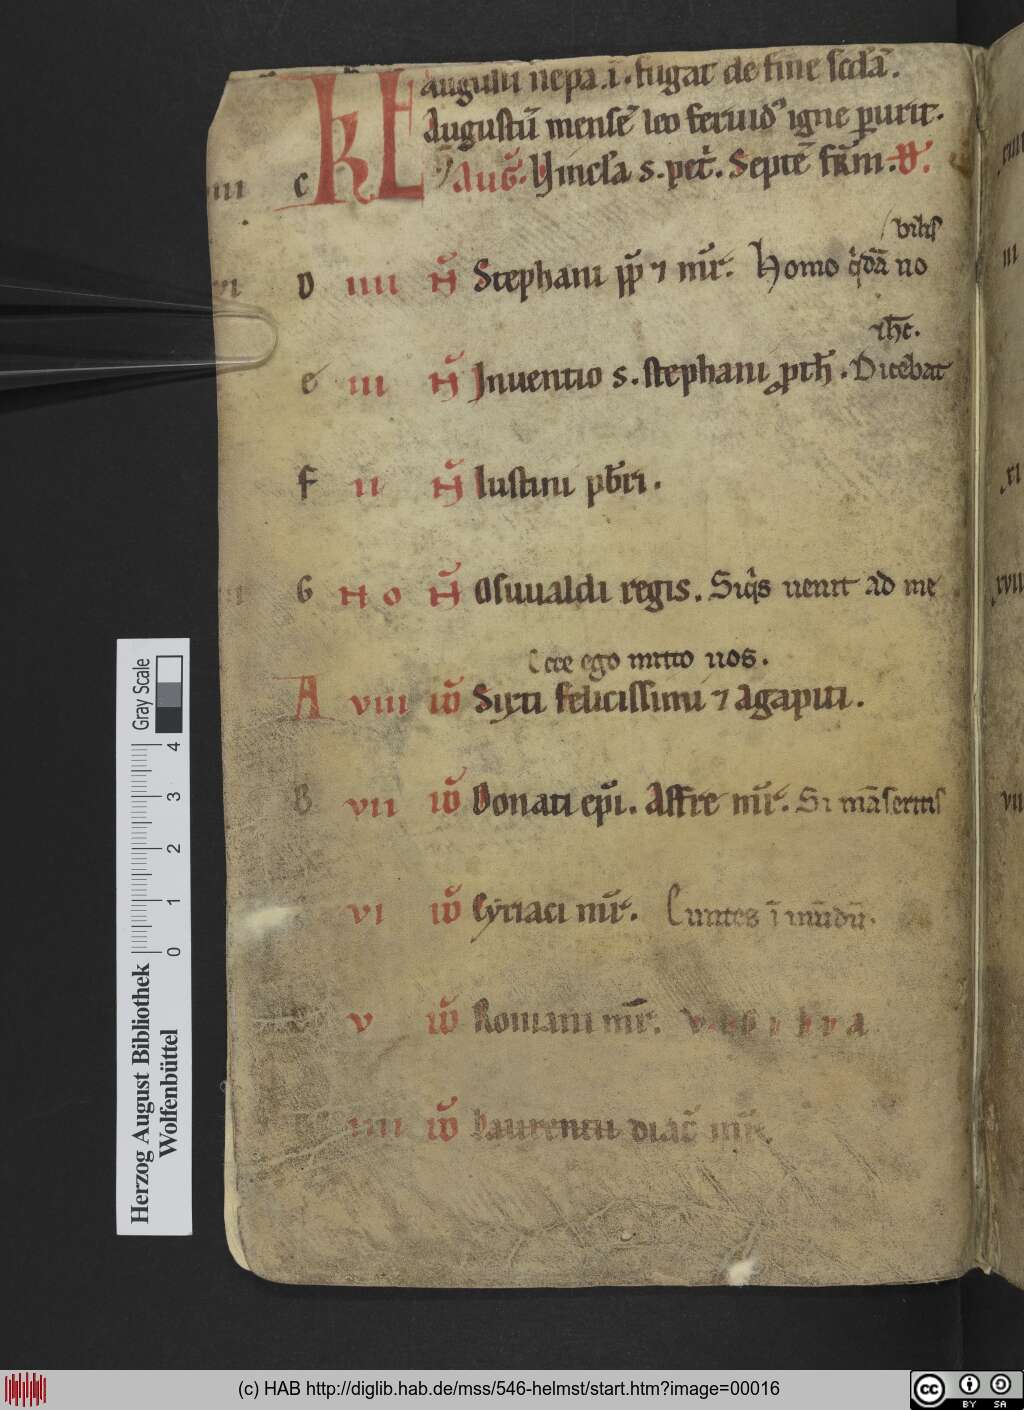 augusti nepa .i. fugat de fine scdā.
KL Augustū mensē leo feruid' igne purit.
iii c Aug̃. Vincl'a s. pet'. Septē fr̄m.
vibil'
vi D iiii N̄ Stephani pp̄ ⁊ mr̄. Homo q'dā no
e iii N̄ Inuentio s. stephani proth̄. Dicebat ihc.
F ii N̄ Iustini pb̄ri.
G No N̄ Osuualdi regis. Siq's uenit ad me
Ecce ego mitto uos.
A viii id' Sixti felicissimi ⁊ Agapiti.
B vii id' Donati ep̄i. Affre mr̄. Si māseritis
vi id' Cyriaci mr̄. Euntes ī mūdū.
v id' Romani mr̄. Vigilia
iiii id' Laurentii diac̄ mr̄.
Gray Scale
0 1 2 3 4
Herzog August Bibliothek
Wolfenbüttel
iii
xi
xvii
vii
(c) HAB http://diglib.hab.de/mss/546-helmst/start.htm?image=00016
cc BY SA